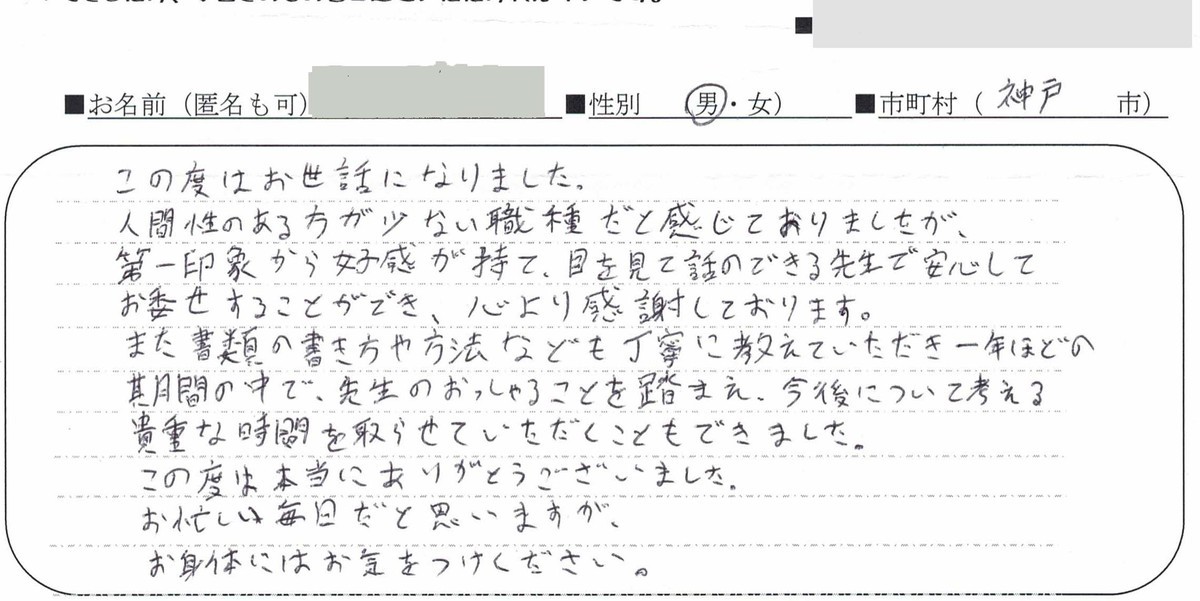 ■お名前（匿名も可） ■性別 （男・女） ■市町村（ 神戸 市）
この度はお世話になりました。
人間性のある方が少ない職種だと感じておりましたが、
第一印象から好感が持て、目を見て話のできる先生で安心して
お委せすることができ、心より感謝しております。
また書類の書き方や方法なども丁寧に教えていただき一年ほどの
期間の中で、先生のおっしゃることを踏まえ、今後について考える
貴重な時間を取らせていただくこともできました。
この度は本当にありがとうございました。
お忙しい毎日だと思いますが、
お身体にはお気をつけください。